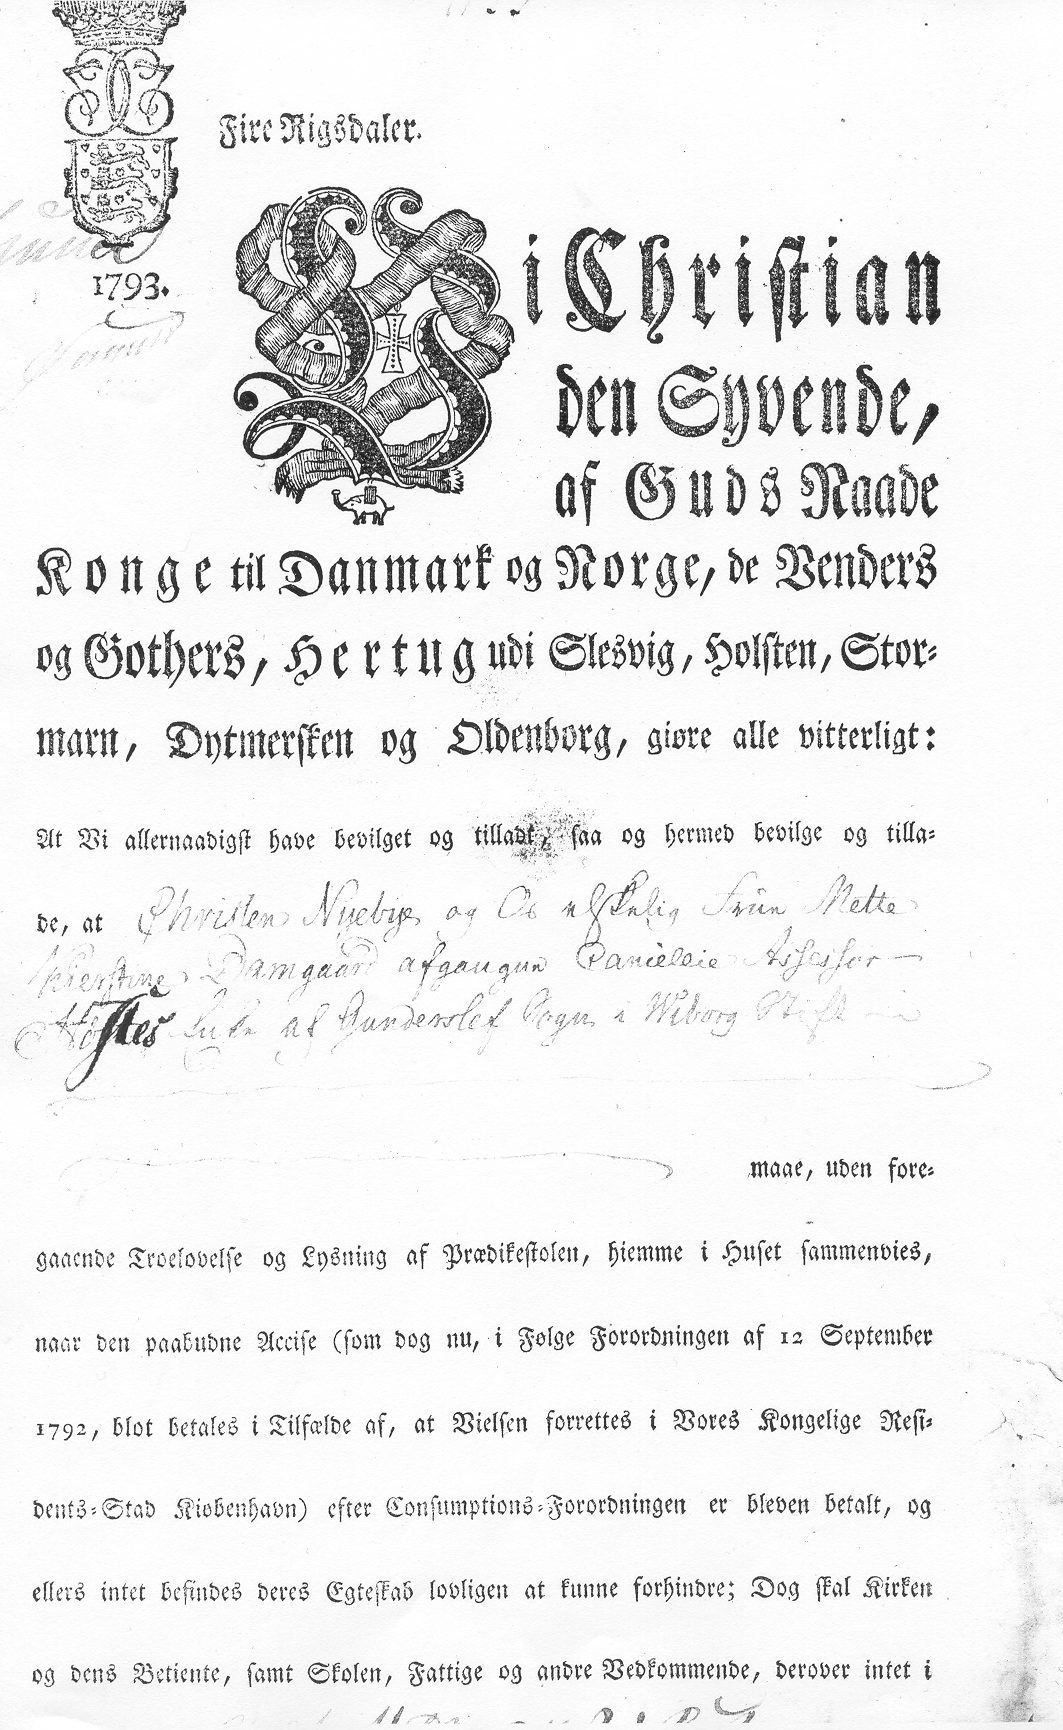 Fire Rigsdaler.
1793.
Vi Christian
den Syvende,
af Guds Naade
Konge til Danmark og Norge, de Venders
og Gothers, Hertug udi Slesvig, Holsten, Stor-
marn, Dytmersken og Oldenborg, giøre alle vitterligt:
At Vi allernaadigst have bevilget og tilladt, saa og hermed bevilge og tilla-
de, at Christen Nyebye og Os elskelig Frue Mette
Kierstine Damgaard afgangne Assessor
af Gunderslef Sogn i Wiborg Stift
maae, uden fore-
gaaende Troelovelse og Lysning af Prædikestolen, hiemme i Huset sammenvies,
naar den paabudne Accise (som dog nu, i Følge Forordningen af 12 September
1792, blot betales i Tilfælde af, at Vielsen forrettes i Vores Kongelige Resi-
dents-Stad Kiøbenhavn) efter Consumptions-Forordningen er bleven betalt, og
ellers intet befindes deres Egteskab lovligen at kunne forhindre; Dog skal Kirken
og dens Betiente, samt Skolen, Fattige og andre Vedkommende, derover intet i